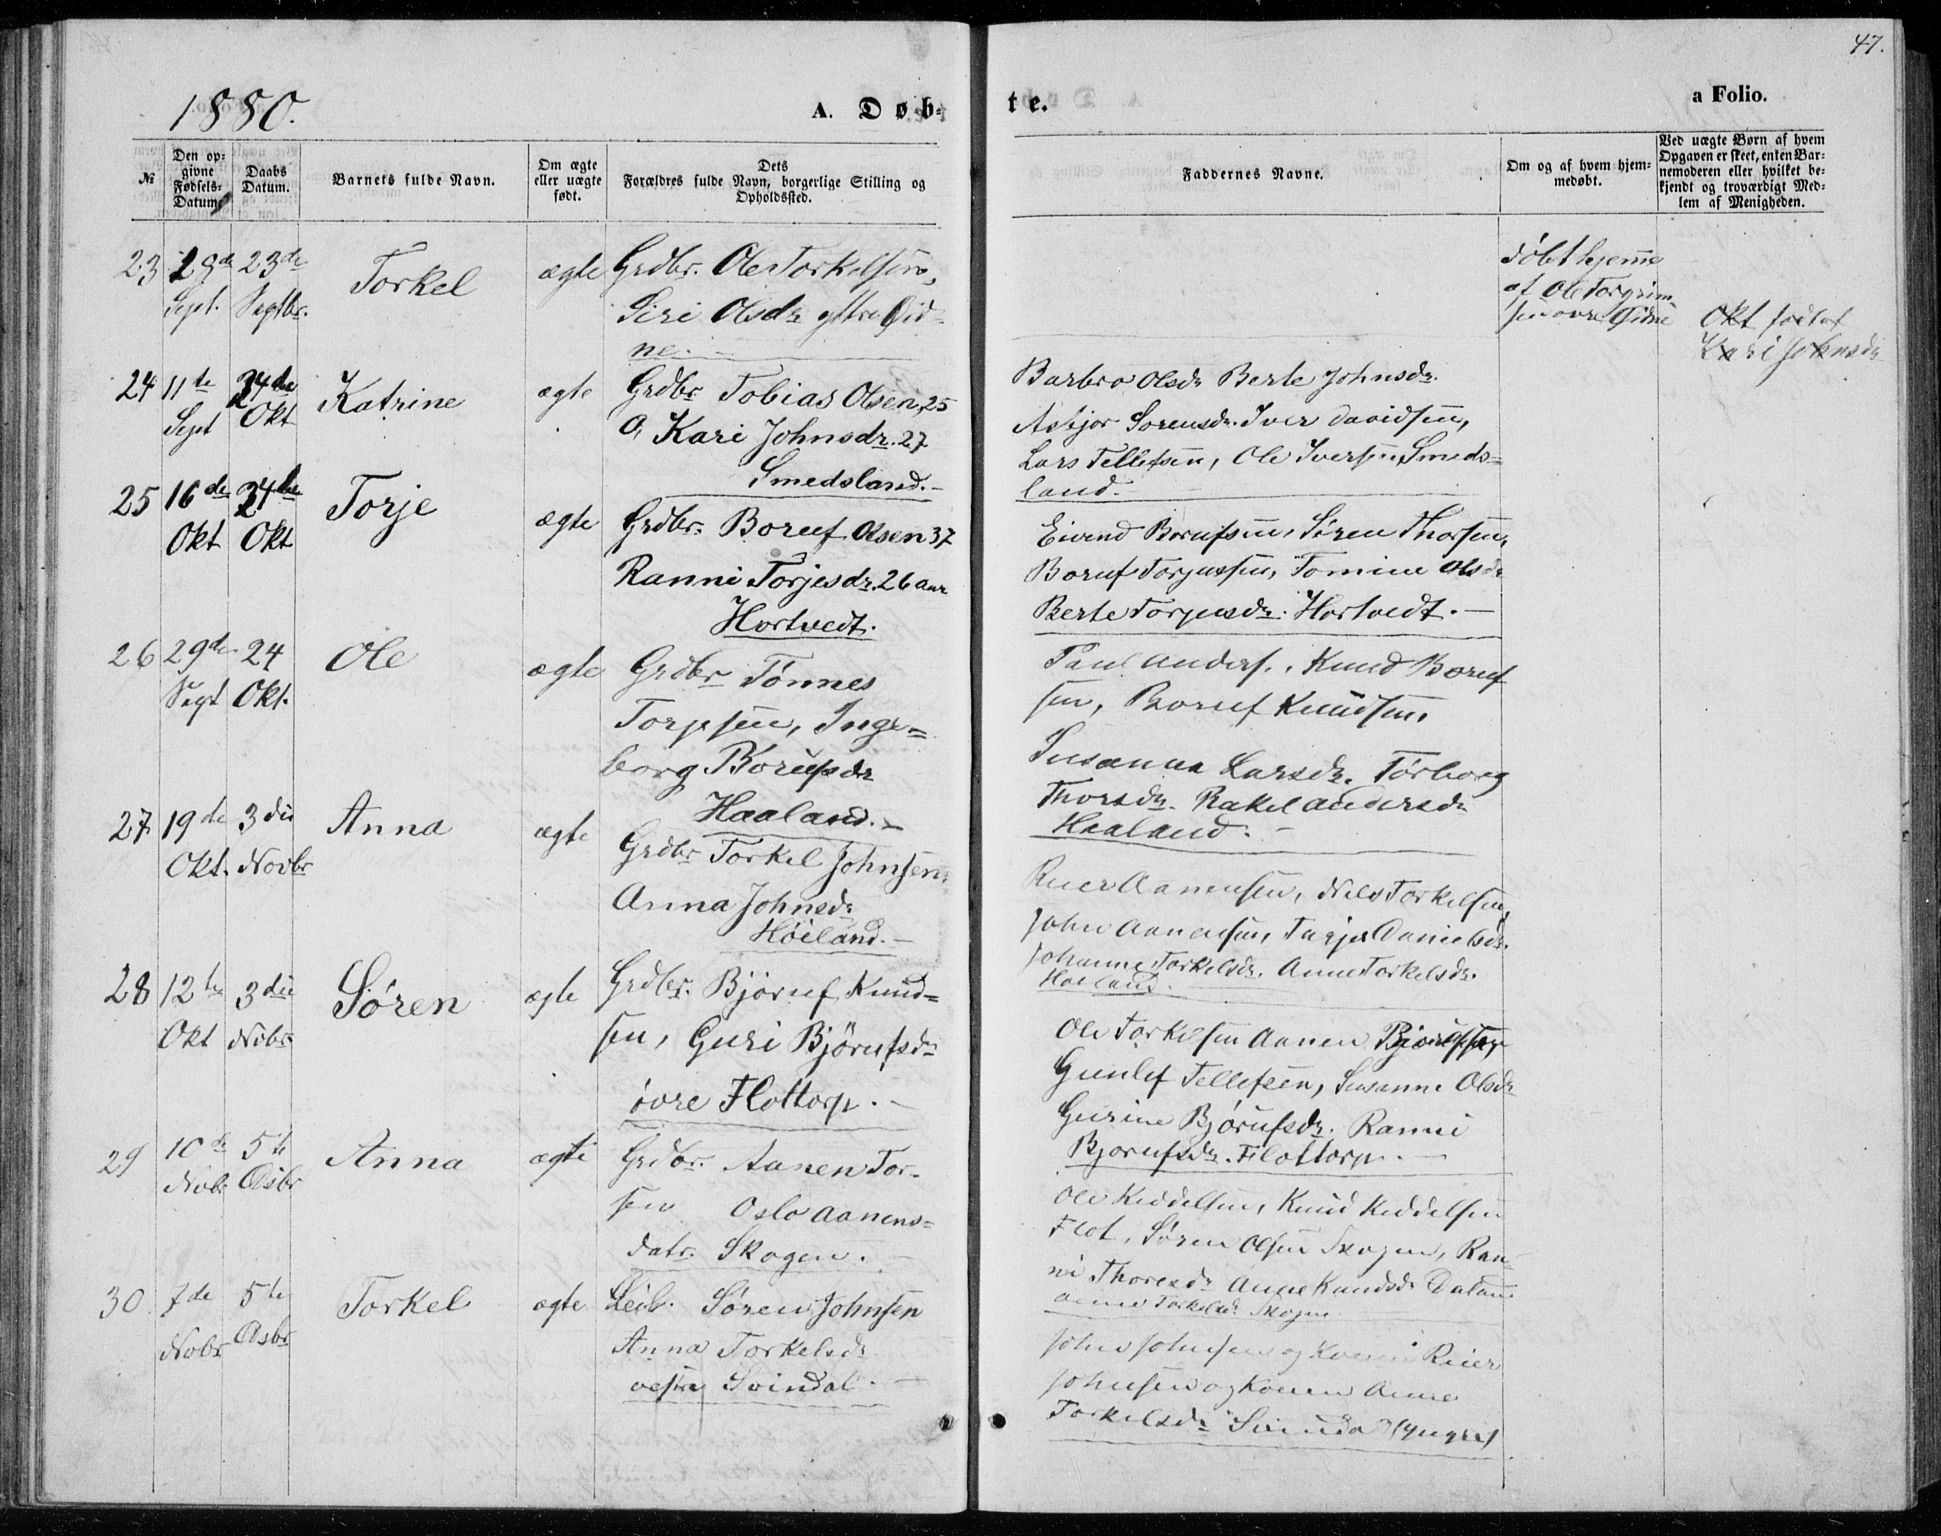 47.
1880.
A. Døb-
te.
a Folio.
№
Den op-
givne
Fødsels-
Datum.
Daabs
Datum.
Barnets fulde Navn.
Om ægte
eller uægte
født.
Dets
Forældres fulde Navn, borgerlige Stilling og
Opholdssted.
Faddernes Navne.
Om og af hvem hjem-
medøbt.
Ved uægte Børn af hvem
Opgaven er skeet, enten Bar-
nemoderen eller hvilket be-
kjendt og troværdigt Med-
lem af Menigheden.
23 23de Torkel ægte Grdbr. Ole Torkelsen,
Sept. Septbr. Siri Olsdr. yttre
ne.
døbt hjemme
af Ole Torgrim-
sen øvre
Okt
Kari Johnsdr
24 11te 24de Katrine ægte Grdbr Tobias Olsen, 25
Sept Okt O, Kari Johnsdr. 27
Smedsland.
Barbro Olsdr Berte Johnsdr.
Asbjor Sorensdr. Iver Davidsen,
Lars Tellefsen, Ole Iversen, Smeds-
land.
25 16de 24de Torje ægte Grdbr. Boruf Olsen 37
Okt Okt Ranni Torjesdr. 26 aar
Hortvedt.
Eivend Borufsen, Søren Thorsen,
Boruf Torjussen, Tomine Olsdr
Berte Torjusdr. Hortvedt.
26 29de 24 Ole ægte Grdbr Tönnes
Sept Okt. Torjesen, Inge-
borg Borufsdr
Haaland.
Paul Anders., Knud Boruf
sen, Boruf Knudsen,
Susanna Larsdr. Torborg
Thorsdr. Rakel Andersdr
Haaland.
27 19de 3die Anna ægte Grdbr Torkel Johnsen,
Okt. Novbr Anna Johnsdr
Höiland.
Reier Aanensen, Nels Torkelsen,
John Aanensen, Danielsdr.
Johanne Torkelsdr. Anne Torkelsdr.
28 12te 3die Søren ægte Grdbr. Björuf Knud-
Okt Nobr sen, Guri Björufsdr
övre Flottorp.
Ole Torkelsen Aanen
Gunlef Tellefsen, Susanne Olsdr
Gurine Bjørufsdr. Ranni
Bjorufsdr. Flottorp.
29 10de 5te Anna ægte Grdbr. Aanen Tor-
Nobr Dsbr sen Oslo Aanens-
datr. Skogen.
Ole Keddelsen, Knud Keddelsen
Flot, Søren Olsen Skogen, Ran-
ni Thoresdr Anne Knudsdr
Anne Torkelsdr Skogen
30 7de 5te Torkel ægte Leil. Søren Johnsen
Nobr Dsbr Anna Torkelsdr
vestre Svindal.
John Johnsen og Konen Reier
Johnsen og Konen Anne
Torkelsdr